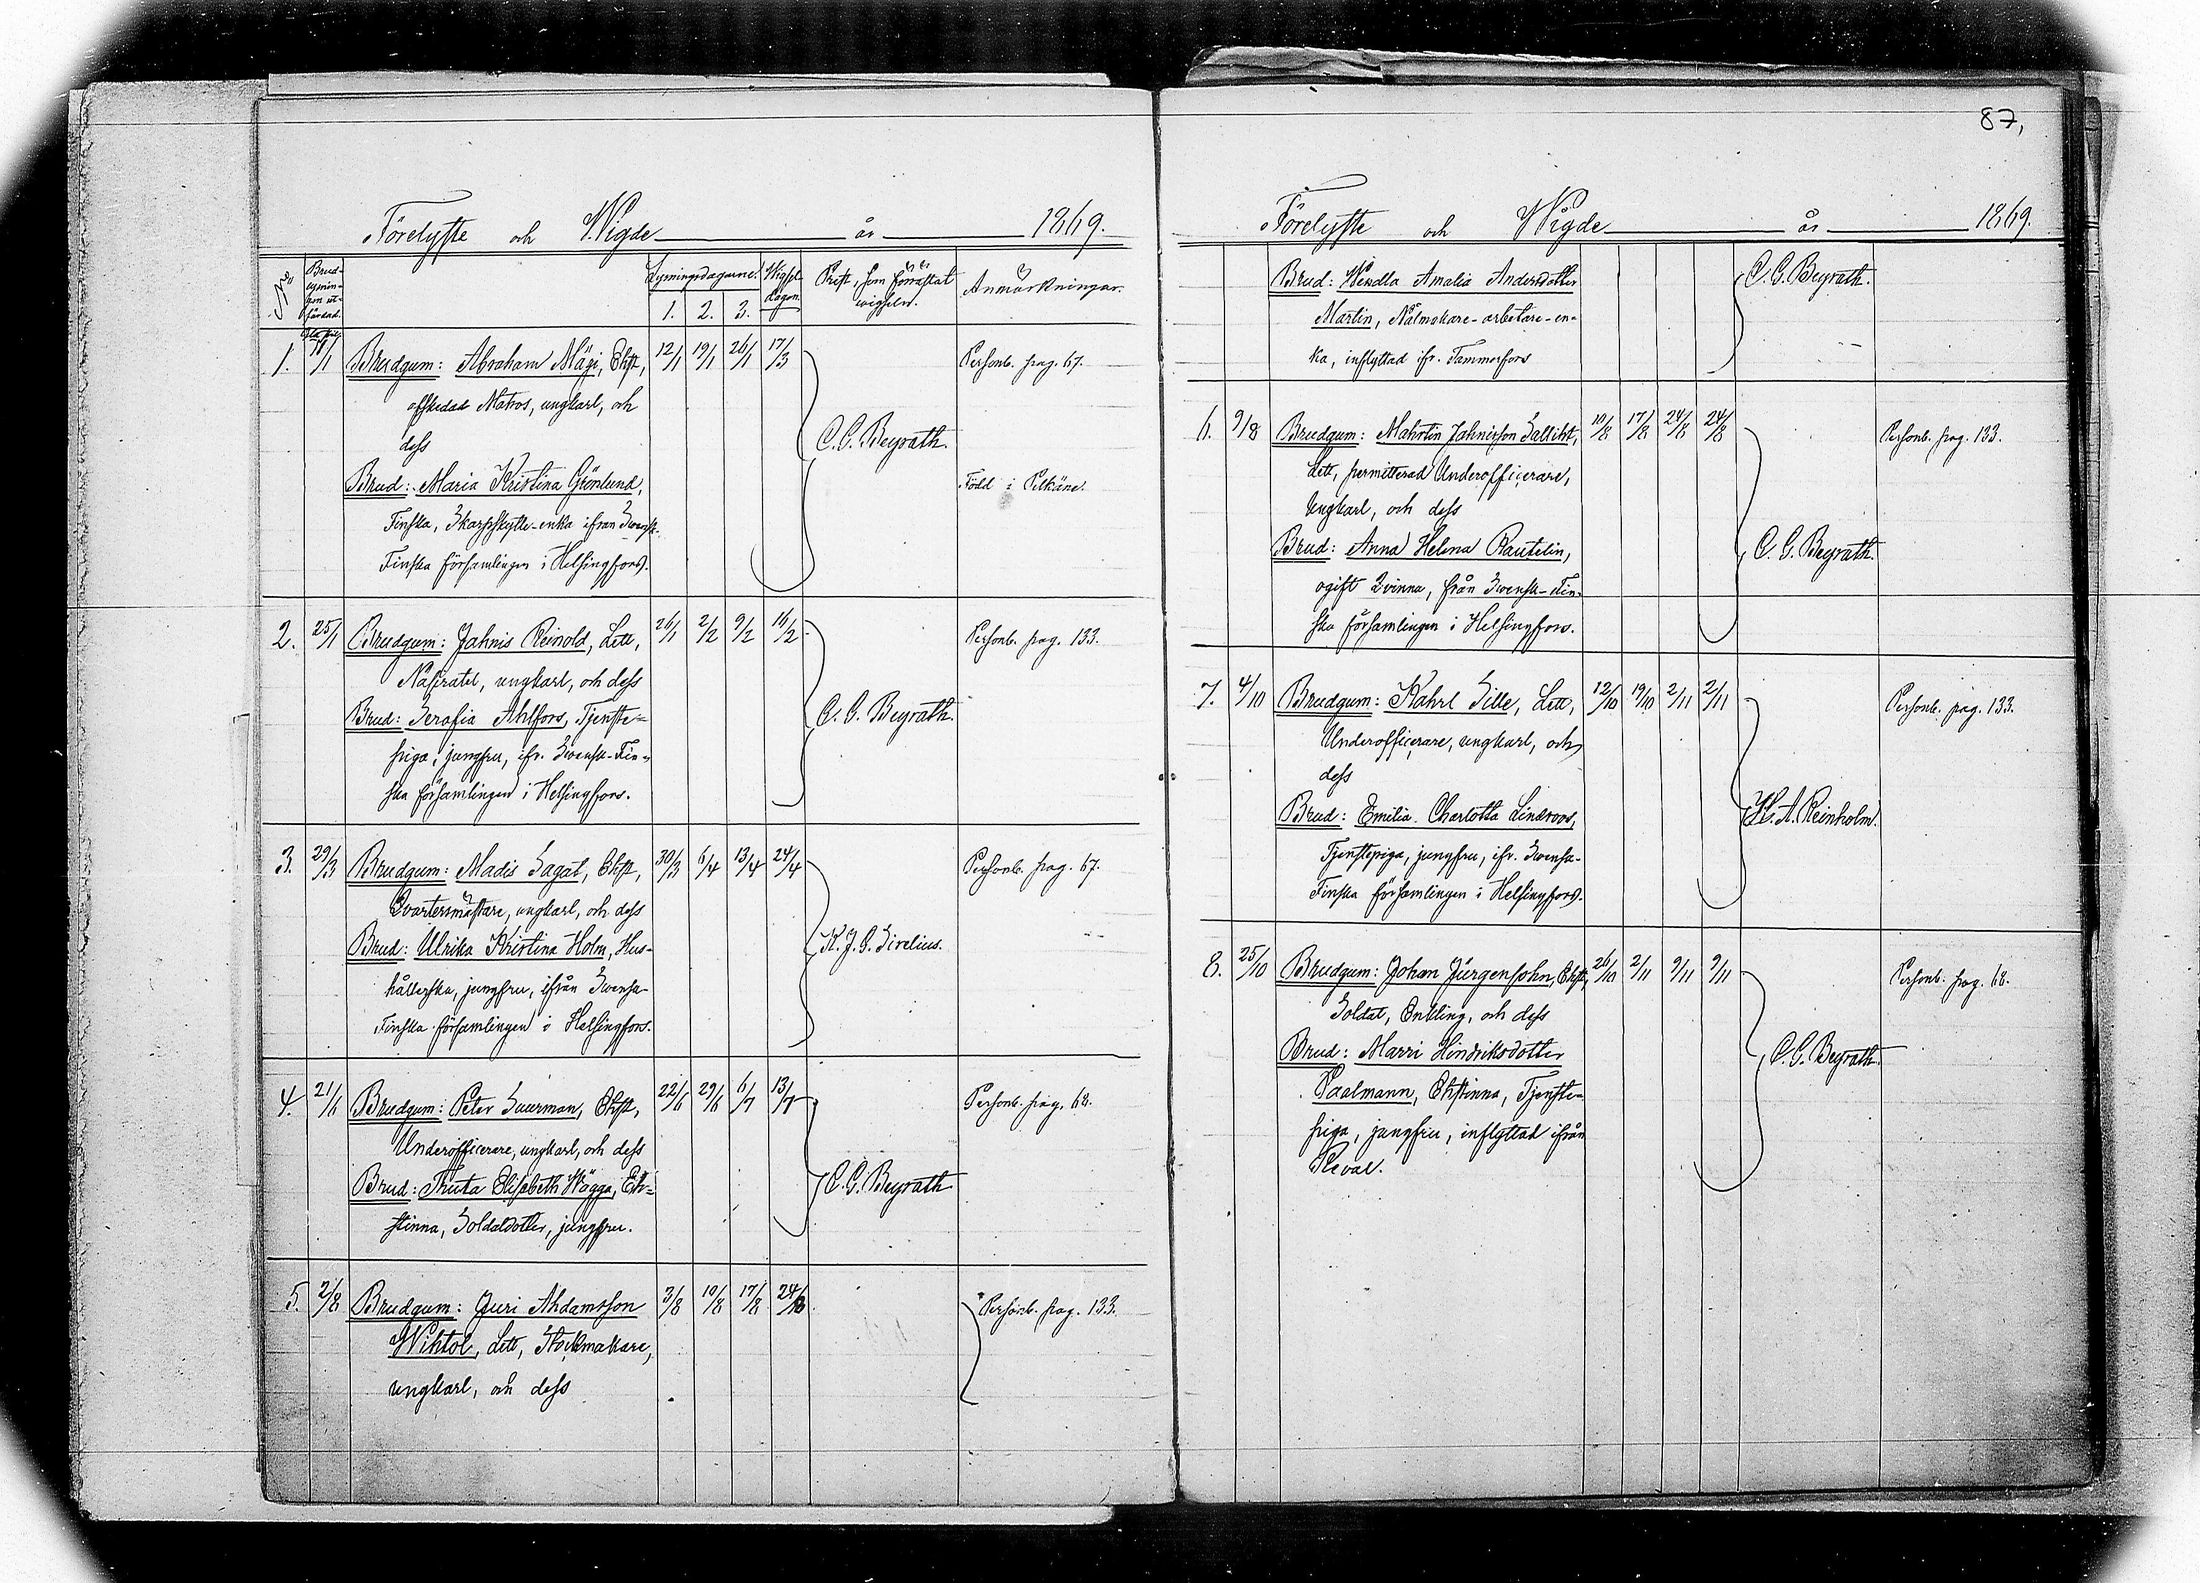 87,
Förelyste och Wigde år 1869.
No Brud- Lysningsdagarne. Wigsel Prest, som förrättat Anmärkningar.
dagen. wigseln.
1. 2. 3.
1. 1/1 Brudgum: Abraham Mägi, Ehst, 12/1 19/1 26/1 17/3 Personb. pag. 67.
afskedad Matros, ungkarl, och
dess C. G. Beyrath.
Brud: Maria Kristina Grönlund, Född i Pelkäne.
Finska, Skarpskytte-enka ifrån Svensk-
Finska församlingen i Helsingfors.
2. 25/1 Brudgum: Jahnis Reinold, Lett, 26/1 2/2 9/2 16/2 Personb. pag. 133.
ungkarl, och dess
Brud: Serafia Ahlfors, Tjenste- C. G. Beyrath.
piga, jungfru, ifr. Svensk-Fin-
ska församlingen i Helsingfors.
3. 29/3 Brudgum: Madis Sagat, Ehst, 30/3 6/4 13/4 24/4 Personb. pag. 67.
Qvartersmästare, ungkarl, och dess
Brud: Ulrika Kristina Holm, Hus- K. J. G. Sirelius.
hållerska, jungfru, ifrån Svensk-
Finska församlingen i Helsingfors.
4. 21/6 Brudgum: Peter Suurman, Ehst, 22/6 29/6 6/7 13/7 Personb. pag. 68.
Underofficerare, ungkarl, och dess
Brud: Truta Elisabeth Wägga, Eh- C. G. Beyrath
stinna, Soldatdotter, jungfru.
5. 2/8 Brudgum: Juri Ahdamsson 3/8 10/8 17/8 24/8 Personb. pag. 133.
Wihtol, Lett, Stockmakare,
ungkarl, och dess
Förelyste och Wigde år 1869.
Brud: Wendla Amalia Andersdotter C. G. Beyrath.
Martin, Nålmakare-arbetare-en-
ka, inflyttad ifr. Tammerfors
6. 9/8 Brudgum: Mahrtin Jahnisson Salliht, 10/8 17/8 24/8 24/8 Personb. pag. 133.
Lett, permitterad Underofficerare,
Ungkarl, och dess
Brud: Anna Helena Rautelin, C. G. Beyrath.
ogift Qvinna, från Svensk-Fin-
ska församlingen i Helsingfors.
7. 4/10 Brudgum: Kahrl Sille, Lett, 12/10 19/10 2/11 2/11 Personb. pag. 133.
Underofficerare, ungkarl, och
dess
Brud: Emilia Charlotta Lindroos, H. A. Reinholm.
Tjenstepiga, jungfru, ifr. Svensk-
Finska församlingen i Helsingfors.
8. 25/10 Brudgum: Johan Jürgensohn, Ehst, 26/10 2/11 9/11 9/11 Personb. pag. 68.
Soldat, Enkling, och dess
Brud: Marri Hindriksdotter C. G. Beyrath.
Paalmann, Ehstinna, Tjenste-
piga, jungfru, inflyttad ifrån
Reval.